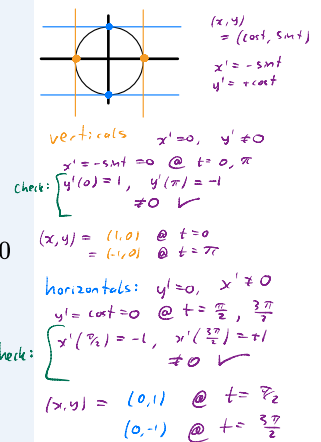 (x,y)
= (cost, sint)
x' = -sint
y' = +cost
verticals x'=0, y'≠0
x' = -sint = 0 @ t = 0, π
check: y'(0) = 1, y'(π) = -1
≠0 ✓
0
(x,y) = (1,0) @ t=0
= (-1,0) @ t=π
horizontals: y'=0, x'≠0
y' = cost = 0 @ t = π/2, 3π/2
heck: x'(π/2) = -1, x'(3π/2) = +1
≠0 ✓
(x,y) = (0,1) @ t = π/2
(0,-1) @ t = 3π/2